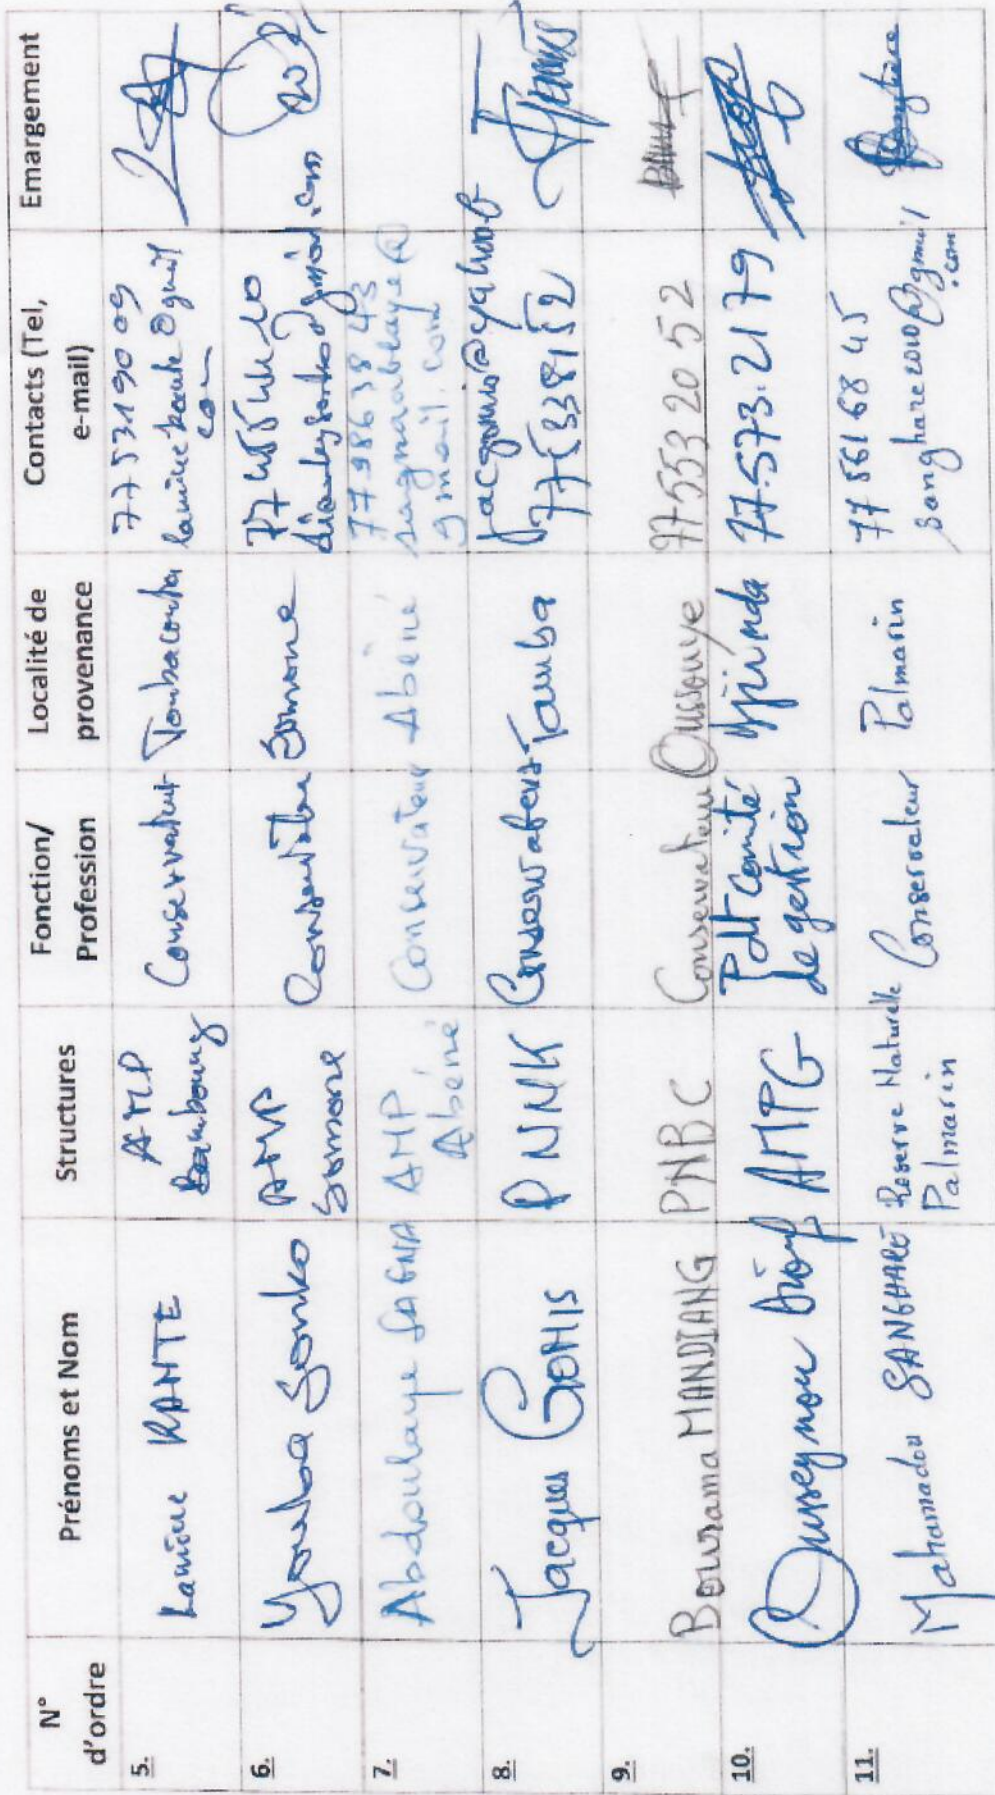 N° d'ordre
Prénoms et Nom
Structures
Fonction/ Profession
Localité de provenance
Contacts (Tel, e-mail)
Emargement
5.
Lamine KANTE
AMP
Bamboung
Conservateur
Toubacouta
77 5319009
laminekante@gmail
com
6.
Youba Sonko
AMP
Somone
Somone
@gmail.com
7.
Abdoulaye SAGNA
AMP
Abéné
Conservateur
Abéné
77 9863843
sagnabalaye@
gmail.com
8.
Jacques GOMIS
PNNK
Conservateur
Tamba
jacgomis@yahoo
9.
Bourama MANDIANG
PNBC
Conservateur
Oussouye
77 553 20 52
10.
Ousseynou Diouf
AMPG
Pdt comité
de gestion
77.573.21 79
11.
Mahamadou SANGHARE
Reserve Naturelle
Palmarin
Conservateur
Palmarin
77 561 68 45
sanghare2010@gmail
.com